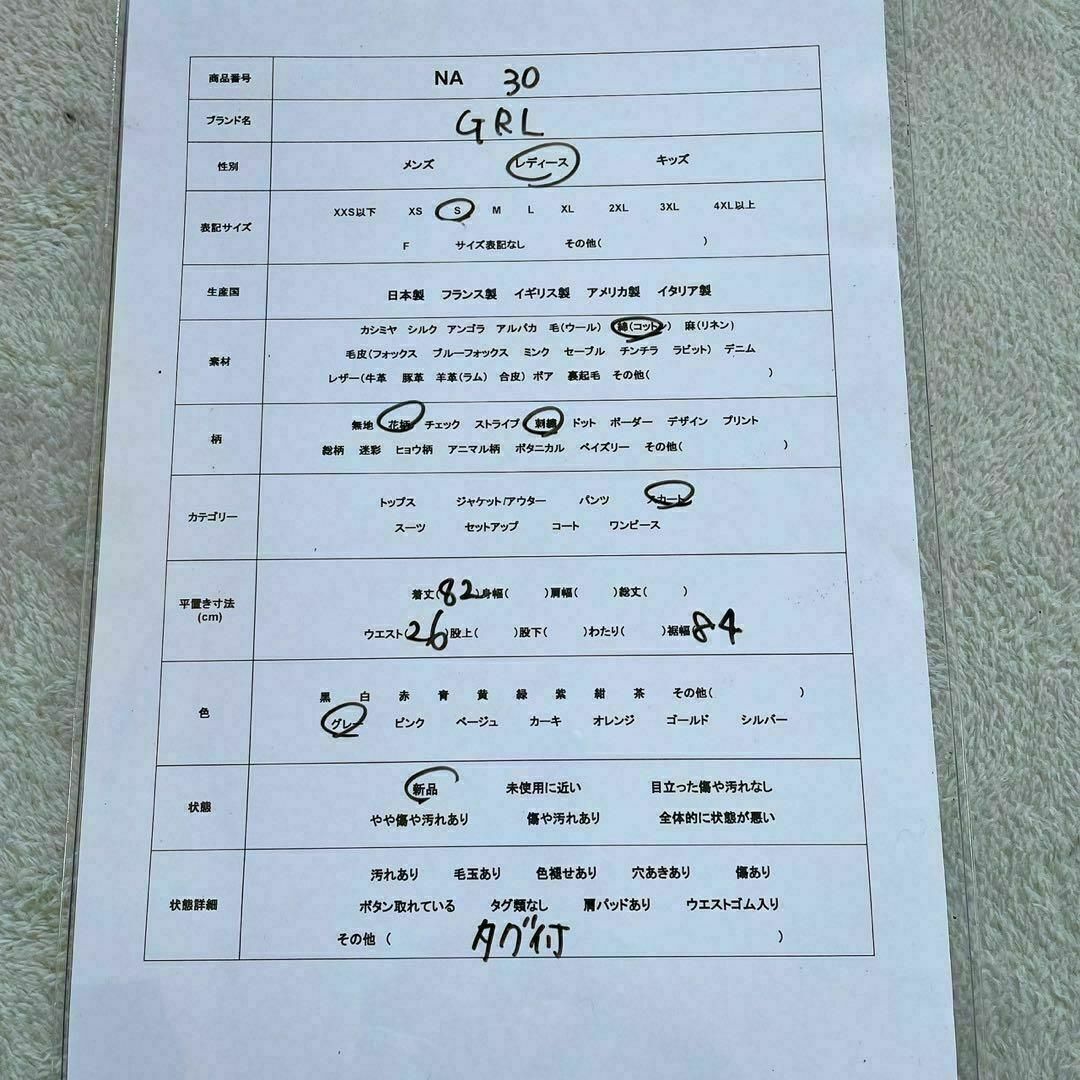 商品番号 NA 30
ブランド名 GRL
性別 メンズ レディース キッズ
表記サイズ XXS以下 XS S M L XL 2XL 3XL 4XL以上
F サイズ表記なし その他( )
生産国 日本製 フランス製 イギリス製 アメリカ製 イタリア製
素材 カシミヤ シルク アンゴラ アルパカ 毛(ウール) 綿(コットン) 麻(リネン)
毛皮(フォックス ブルーフォックス ミンク セーブル チンチラ ラビット) デニム
レザー(牛革 豚革 羊革(ラム) 合皮) ボア 裏起毛 その他( )
柄 無地 花柄 チェック ストライプ 刺繍 ドット ボーダー デザイン プリント
総柄 迷彩 ヒョウ柄 アニマル柄 ボタニカル ペイズリー その他( )
カテゴリー トップス ジャケット/アウター パンツ スカート
スーツ セットアップ コート ワンピース
平置き寸法 (cm) 着丈(82)身幅( )肩幅( )総丈( )
ウエスト(26)股上( )股下( )わたり( )裾幅84
色 黒 白 赤 青 黄 緑 紫 紺 茶 その他( )
グレー ピンク ベージュ カーキ オレンジ ゴールド シルバー
状態 新品 未使用に近い 目立った傷や汚れなし
やや傷や汚れあり 傷や汚れあり 全体的に状態が悪い
状態詳細 汚れあり 毛玉あり 色褪せあり 穴あきあり 傷あり
ボタン取れている タグ類なし 肩パッドあり ウエストゴム入り
その他 ( タグ付 )